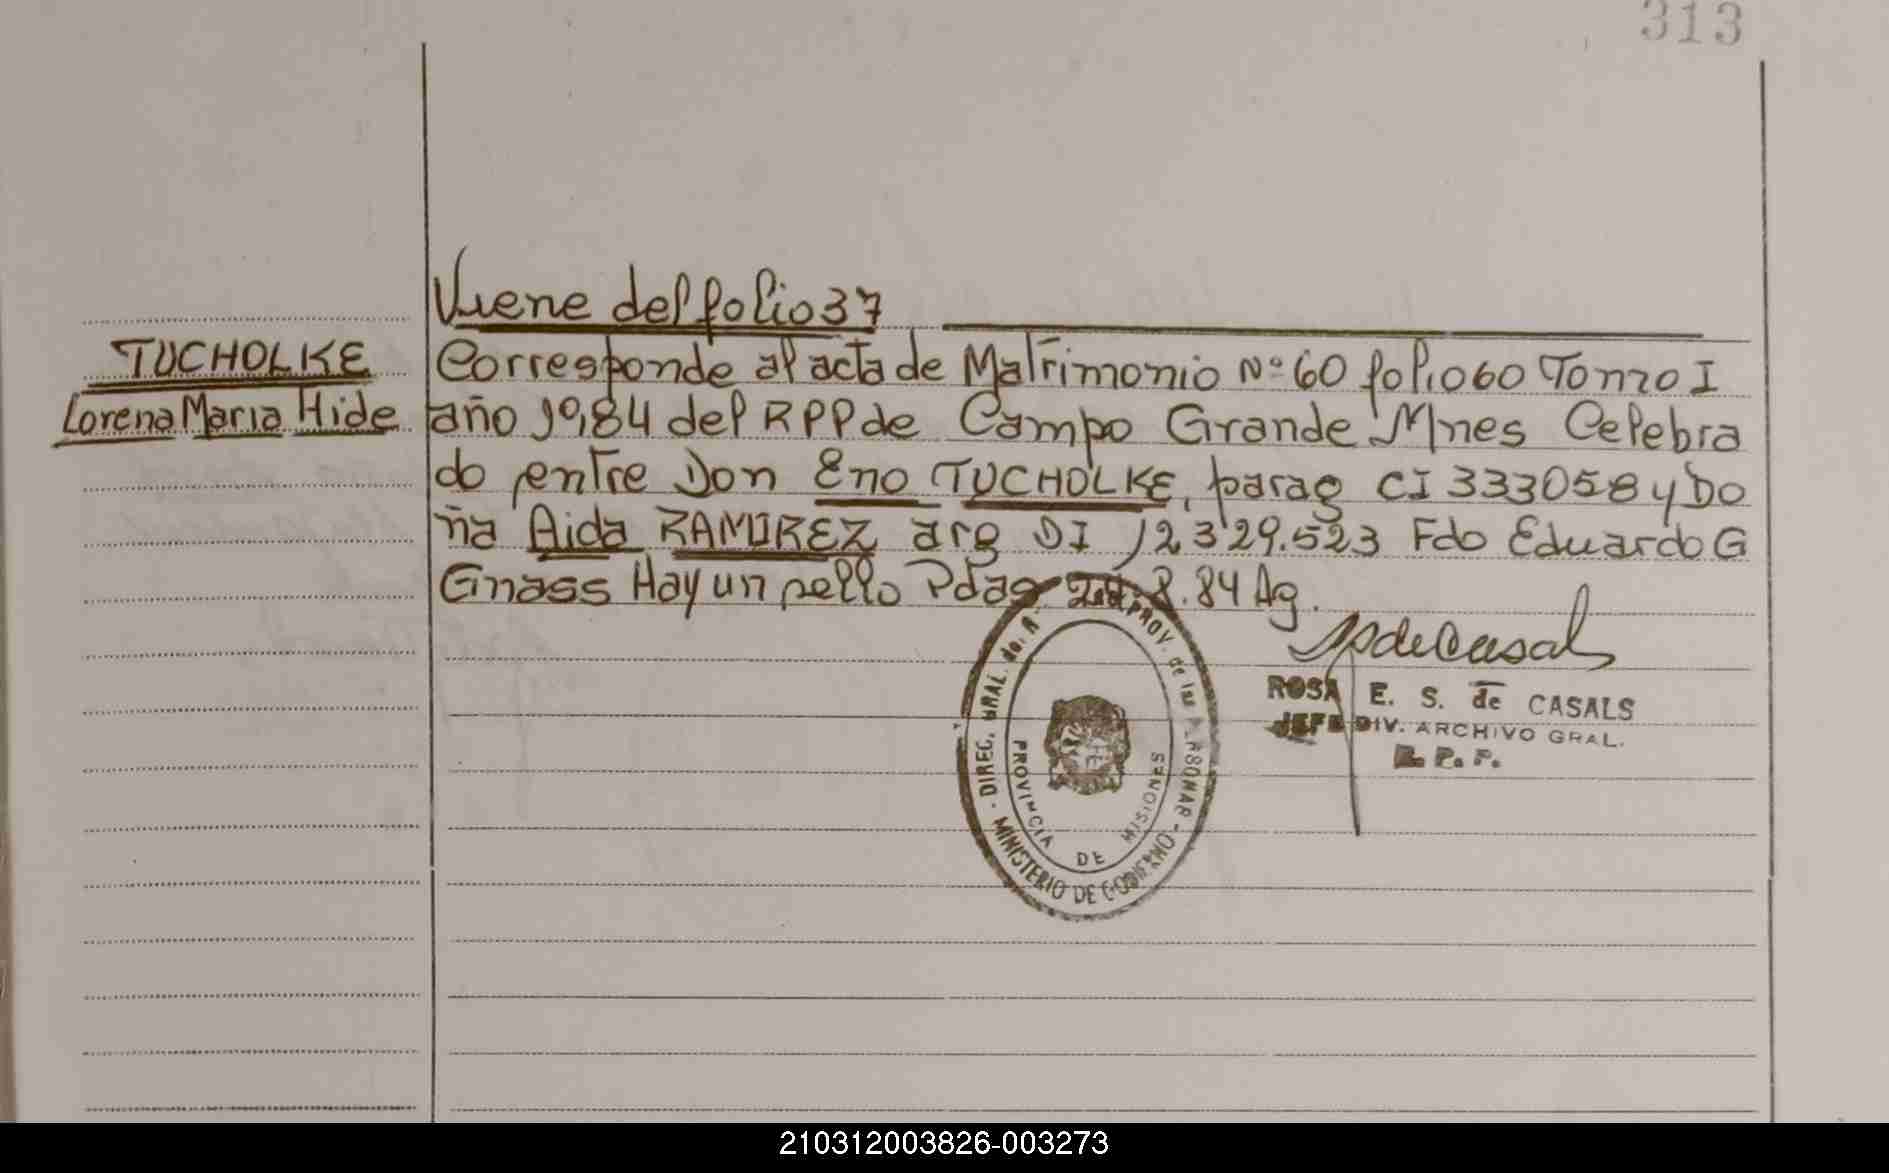 313
Viene del folio 37
TUCHOLKE
Lorena Maria Hide
Corresponde al acta de Matrimonio Nº 60 folio 60 Tomo I
año 1984 del RPP de Campo Grande Mnes Celebra
do entre Don Eno TUCHOLKE, parag CI 333058 y Do
ña Aida RAMIREZ arg DI 12329.523 Fdo Eduardo G
Gnass Hay un sello Pdas 8.84 Ag.
ROSA E. S. de CASALS
JEFE DIV. ARCHIVO GRAL.
R. P. P.
DIREC. GRAL. PROV. de las PERSONAS
MINISTERIO DE GOBIERNO
PROVINCIA DE MISIONES
210312003826-003273